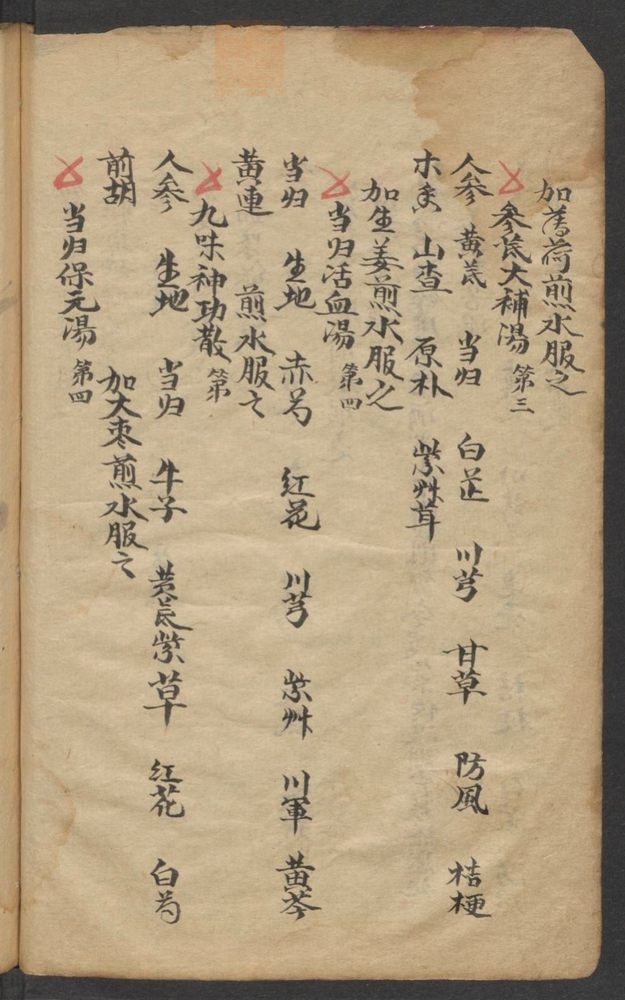 加薄荷煎水服之
参芪大補湯 第三
人參 黄芪 当归 白芷 川芎 甘草 防風 桔梗
木香 山查 原朴 紫艸茸
加生姜煎水服之
当归活血湯 第四
当归 生地 赤芍 红花 川芎 紫艸 川軍 黄芩
黄連 煎水服之
九味神功散 第
人參 生地 当归 牛子 黄芪 紫草 红花 白芍
前胡 加大枣煎水服之
当归保元湯 第四